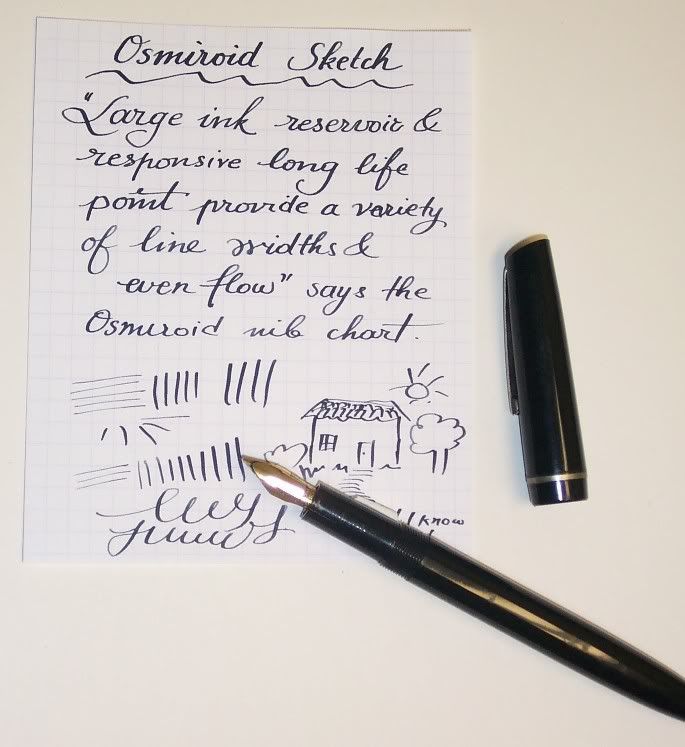 Osmiroid Sketch
"Large ink reservoir &
responsive long life
point provide a variety
of line widths &
even flow" says the
Osmiroid nib chart.
know